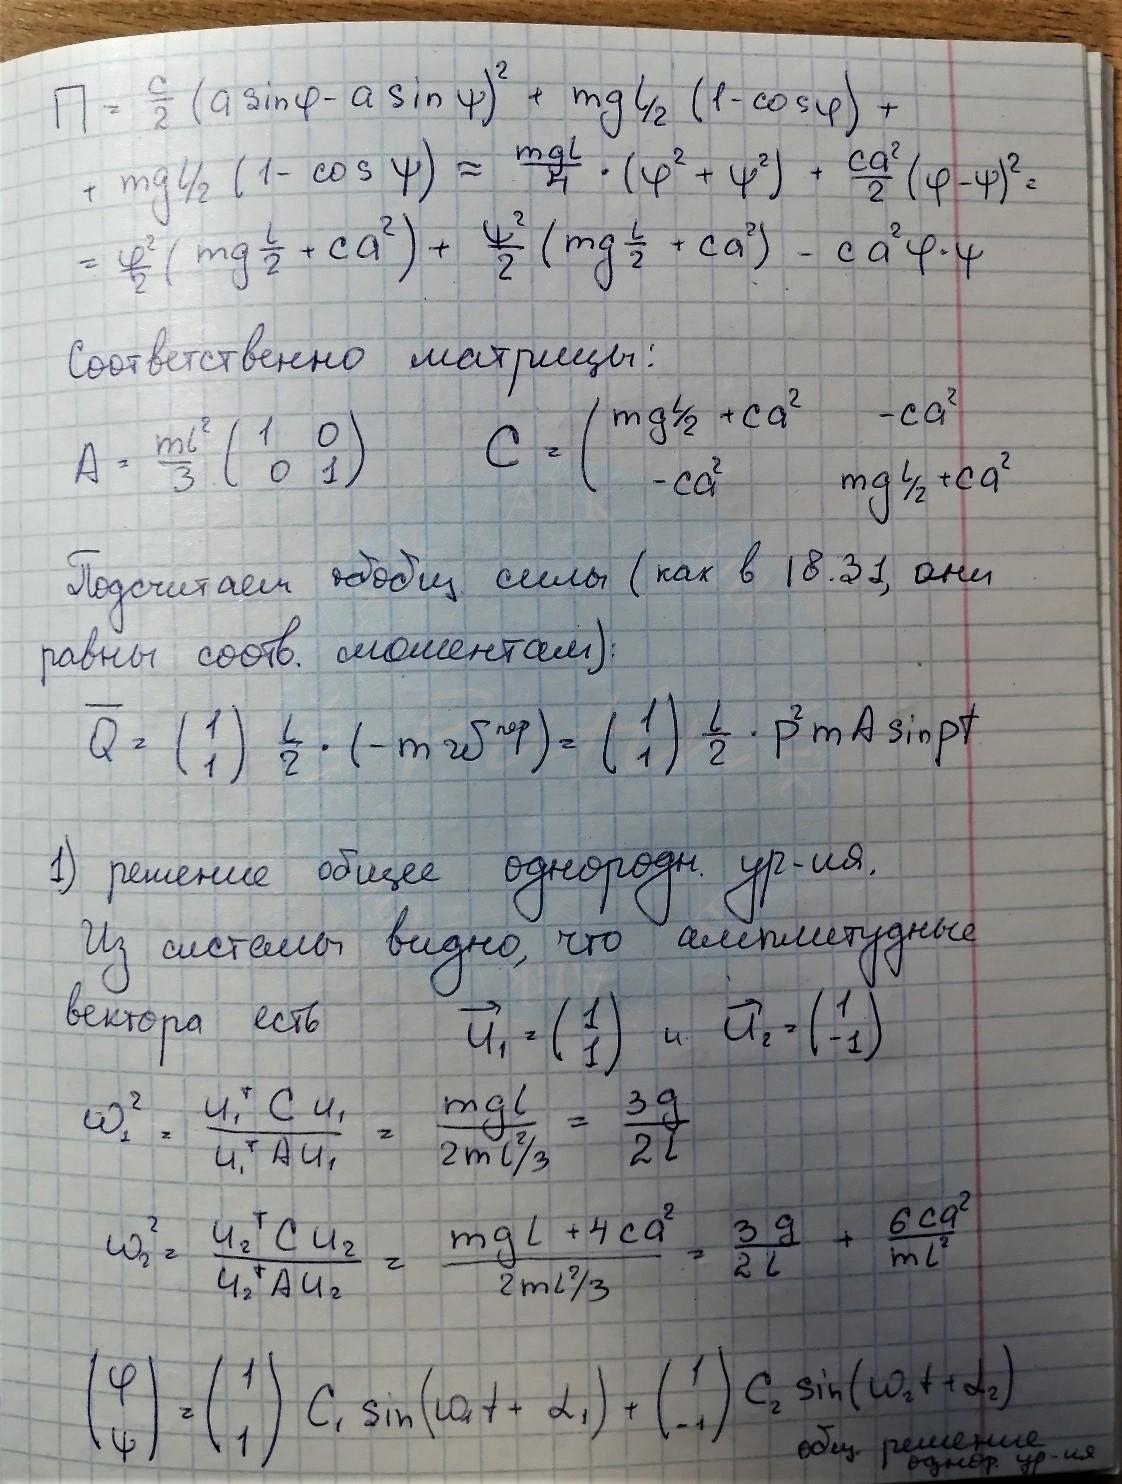 П = c/2 (a sinφ - a sin ψ)² + mg l/2 (1-cosφ) +
+ mg l/2 (1- cos ψ) ≈ mgl/4 · (φ² + ψ²) + ca²/2 (φ-ψ)² =
= φ²/2 (mg l/2 + ca²) + ψ²/2 (mg l/2 + ca²) - ca²φ·ψ
Соответственно матрицы:
A = ml²/3 (1 0; 0 1) C = (mg l/2 + ca² -ca²; -ca² mg l/2 + ca²)
Подсчитаем обобщ. силы (как в 18.31, они
равны соотв. моментам):
Q̅ = (1; 1) l/2 · (-m ω^пер) = (1; 1) l/2 · p²mA sin pt
1) решение общее однородн. ур-ия.
Из системы видно, что амплитудные
вектора есть u⃗₁ = (1; 1) и u⃗₂ = (1; -1)
ω₁² = u₁ᵀ C u₁ / u₁ᵀ A u₁ = mgl / 2ml²/3 = 3g/2l
ω₂² = u₂ᵀ C u₂ / u₂ᵀ A u₂ = mgl + 4ca² / 2ml²/3 = 3g/2l + 6ca²/ml²
(φ; ψ) = (1; 1) C₁ sin(ω₁t + α₁) + (1; -1) C₂ sin(ω₂t + α₂)
общ. решение
однор. ур-ия